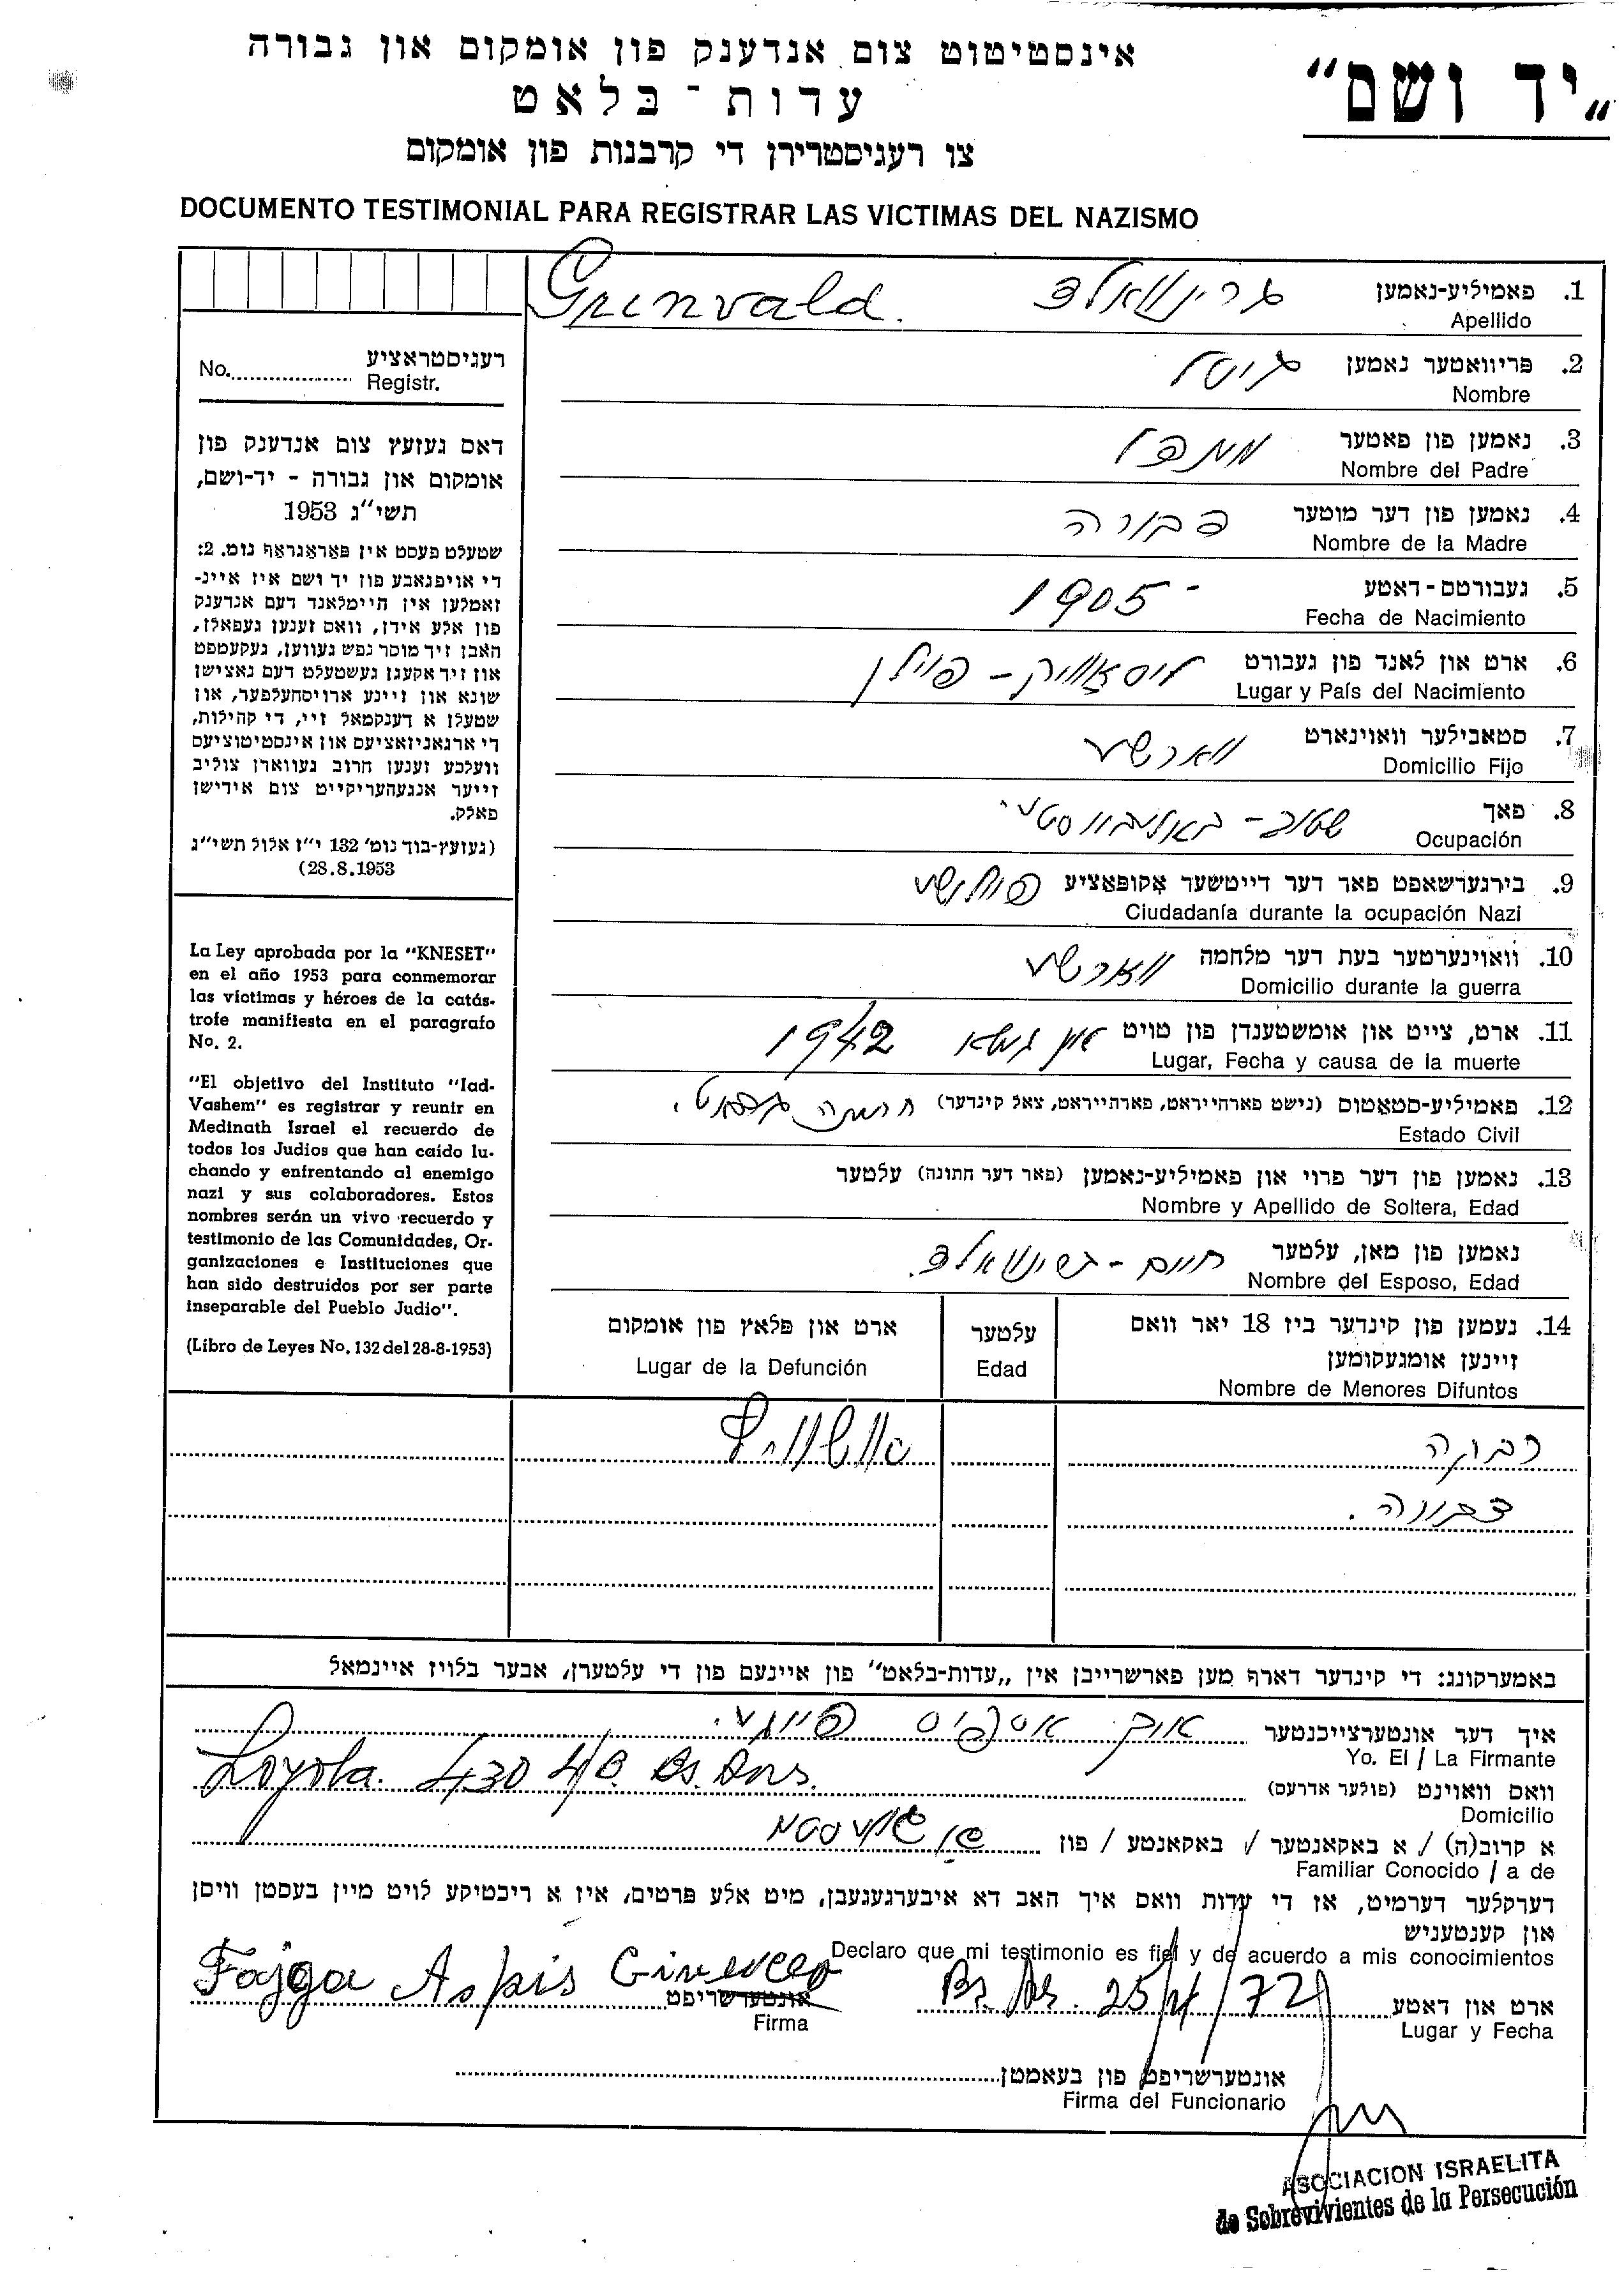 „יד ושם“
אינסטיטוט צום אנדענק פון אומקום און גבורה
עדות-בלאט
צו רעגיסטרירן די קרבנות פון אומקום
DOCUMENTO TESTIMONIAL PARA REGISTRAR LAS VICTIMAS DEL NAZISMO
1. פאמיליע-נאמען גרינוואלד Grinvald.
Apellido
2. פריוואטער נאמען גיטל
Nombre
3. נאמען פון פאטער
Nombre del Padre
4. נאמען פון דער מוטער דבורה
Nombre de la Madre
5. געבורטס-דאטע 1905
Fecha de Nacimiento
6. ארט און לאנד פון געבורט – פוילן
Lugar y País del Nacimiento
7. סטאבילער וואוינארט ווארשע
Domicilio Fijo
8. פאך שטוב-באלעבוסטע
Ocupación
9. בירגערשאפט פאר דער דייטשער אָקופּאַציע פוילישע
Ciudadanía durante la ocupación Nazi
10. וואוינערטער בעת דער מלחמה ווארשע
Domicilio durante la guerra
11. ארט, צייט און אומשטענדן פון טויט אין געטא 1942
Lugar, Fecha y causa de la muerte
12. פאמיליע-סטאטוס (נישט פארהייראט, פארהייראט, צאל קינדער) חתונה געהאט.
Estado Civil
13. נאמען פון דער פרוי און פאמיליע-נאמען (פאר דער חתונה) עלטער
Nombre y Apellido de Soltera, Edad
נאמען פון מאן, עלטער חיים - גרינוואלד.
Nombre del Esposo, Edad
14. נעמען פון קינדער ביז 18 יאר וואס
זיינען אומגעקומען
Nombre de Menores Difuntos
עלטער
Edad
ארט און פלאץ פון אומקום
Lugar de la Defunción
רבקה
דבורה.
רעגיסטראציע
No. Registr.
דאס געזעץ צום אנדענק פון
אומקום און גבורה - יד-ושם,
תשי״ג 1953
שטעלט פעסט אין פאראגראף נומ. 2:
די אויפגאבע פון יד ושם איז איינ-
זאמלען אין היימלאנד דעם אנדענק
פון אלע אידן, וואס זענען געפאלן,
האבן זיך מוסר נפש געווען, געקעמפט
און זיך אקעגן געשטעלט דעם נאצישן
שונא און זיינע ארויסהעלפער, און
שטעלן א דענקמאל זיי, די קהילות,
די ארגאניזאציעס און אינסטיטוציעס
וועלכע זענען חרוב געווארן צוליב
זייער אנגעהעריקייט צום אידישן
פאלק.
(געזעץ-בוך נומ׳ 132 י״ז אלול תשי״ג
28.8.1953)
La Ley aprobada por la "KNESET"
en el año 1953 para conmemorar
las víctimas y héroes de la catás-
trofe manifiesta en el paragrafo
No. 2.
"El objetivo del Instituto "Iad-
Vashem" es registrar y reunir en
Medinath Israel el recuerdo de
todos los Judios que han caído lu-
chando y enfrentando al enemigo
nazi y sus colaboradores. Estos
nombres serán un vivo recuerdo y
testimonio de las Comunidades, Or-
ganizaciones e Instituciones que
han sido destruidos por ser parte
inseparable del Pueblo Judio".
(Libro de Leyes No. 132 del 28-8-1953)
באמערקונג: די קינדער דארף מען פארשרייבן אין „עדות-בלאט“ פון איינעם פון די עלטערן, אבער בלויז איינמאל
איך דער אונטערצייכנטער איך אספיס פייגע.
Yo. El / La Firmante
וואס וואוינט (פולער אדרעס) Loyola 430 4/B. Bs. Ars.
Domicilio
א קרוב(ה) / א באקאנטער / באקאנטע / פון שוועסטער
Familiar Conocido / a de
דערקלער דערמיט, אז די עדות וואס איך האב דא איבערגעגעבן, מיט אלע פרטים, איז א ריכטיקע לויט מיין בעסטן וויסן
און קענטעניש
Declaro que mi testimonio es fiel y de acuerdo a mis conocimientos
ארט און דאטע Bs. As. 25/4/72 אונטערשריפט Fajga Aspis
Lugar y Fecha Firma
אונטערשריפט פון בעאמטן
Firma del Funcionario
ASOCIACION ISRAELITA
de Sobrevivientes de la Persecución